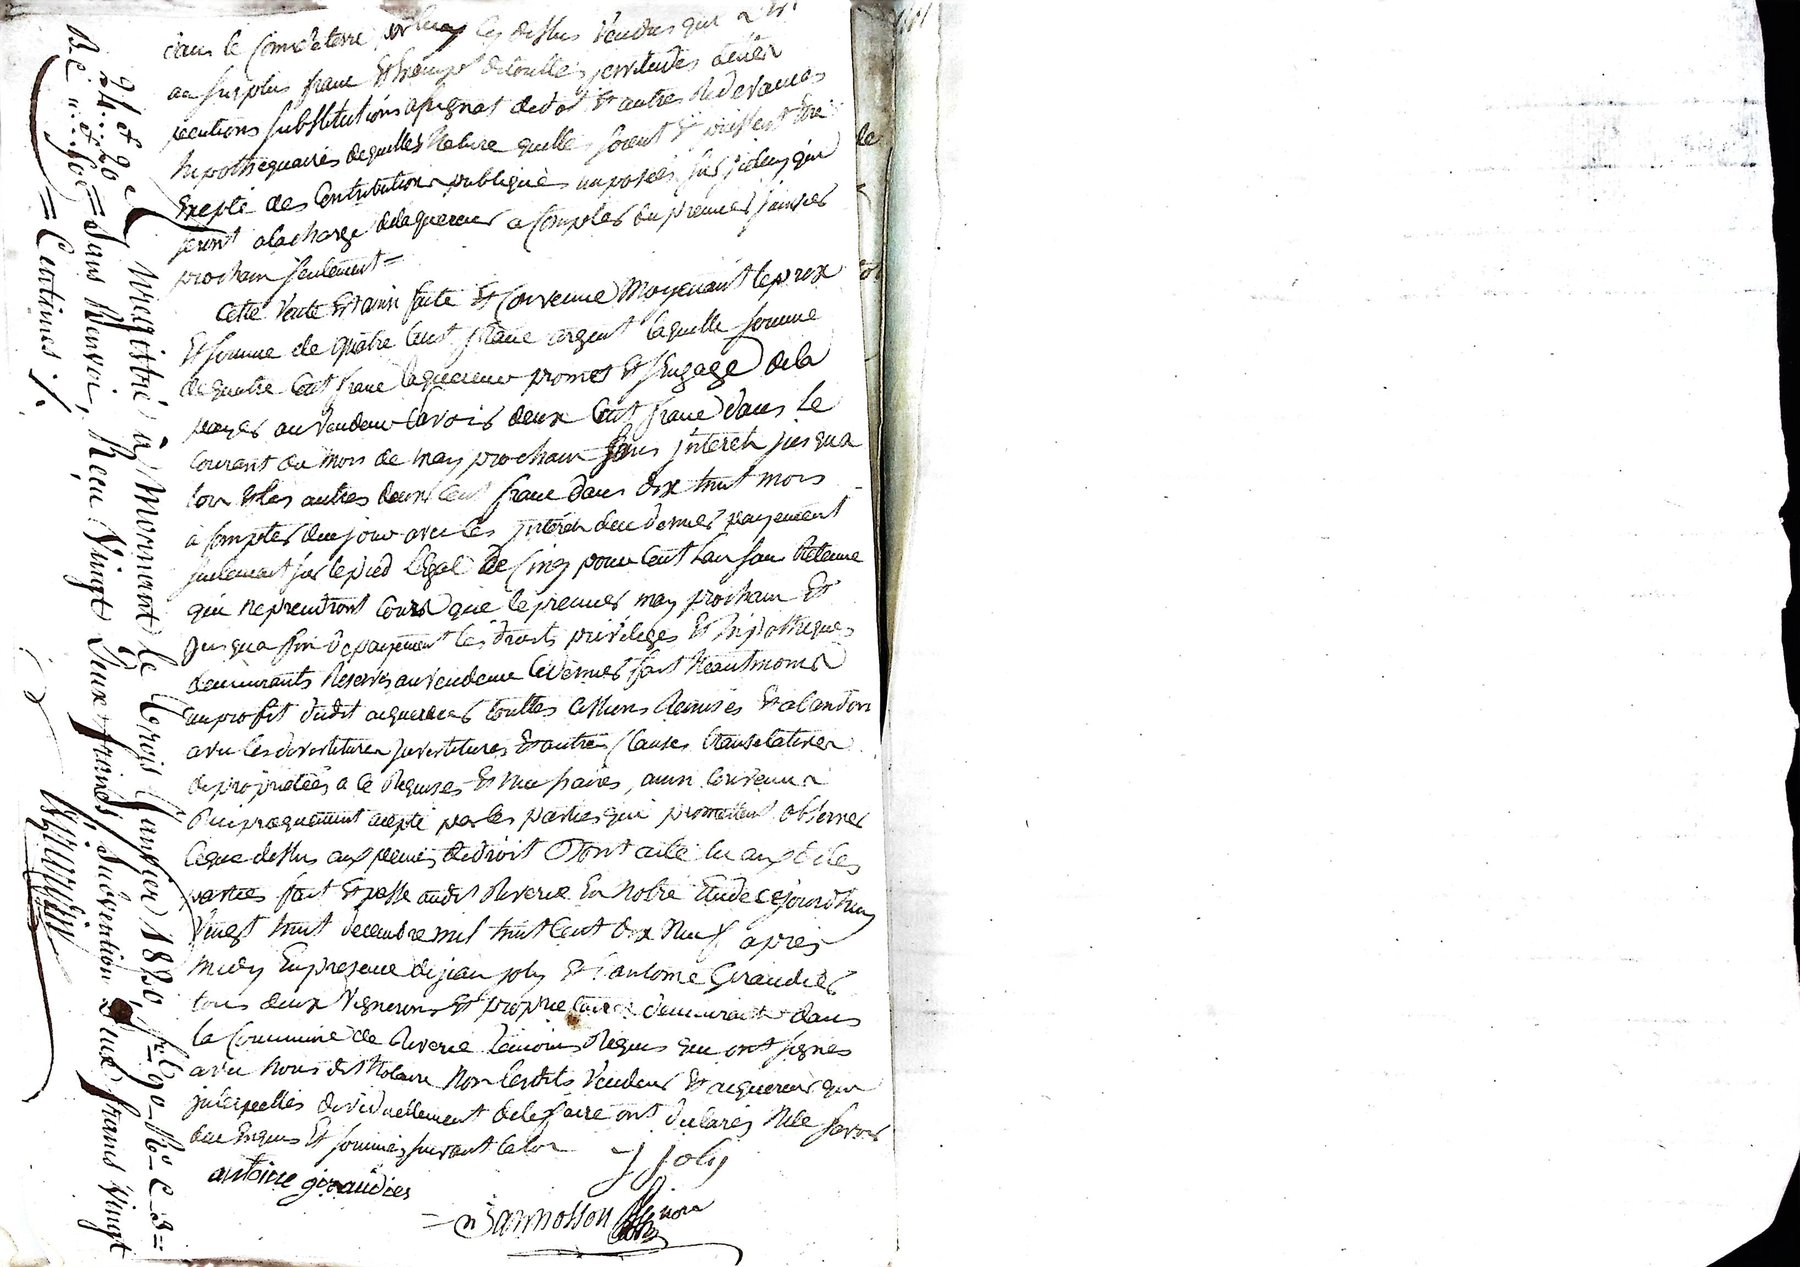 dans le
au surplus franc et exempt de touttes servitudes dettes
pentions substitutions assignat de dot et autres Redevances
hipothequaires de quelles Nature quelles soient et puissent être
Exepté des Contributions publiques imposées sur iceux qui
seront a la charge de laquereur a Compter du premier janvier
prochain seulement =
Cette Vente Est ainsi faite et Convenue Moyenant le prix
Et somme de quatre Cent franc argent laquelle somme
de quatre Cent franc laquereur promet et s'engage de la
payer au vendeur savois deux Cent franc dans le
Courant du mois de may prochain sans jnterets jusqua
lors et les autres deux Cent franc dans dix huit mois
à Compter de ce jour avec les jnterets de ce dernier payement
seulement sur le pied Légal de Cinq pour Cent l'an sans Retenue
qui ne prendront Cours que le premier may prochain et
Jusqua fin de payement les droits privileges et hipotheques
demeurants Reservés au vendeur Ce dernier fait Neantmoins
au profit dudit aquereur touttes Cessions Remises et abandon
avec les devestitures jnvestitures et autres Clauses translatives
de propriettées a ce Requises et Necessaires, ainsi Convenu et
Reciproquement accepté par les parties qui promettent observer
Ceque dessus aux peines de droit Dont acte lu aux dites
parties fait et passé audit Riverie En Notre Etude Cejourdhuy
Vingt huit decembre mil huit Cent dix Neuf après
midy En presence de jean joly et d'antoine Giraudier
tous deux Vignerons et proprietaires demeurant dans
la Commune de Riverie témoins Requis qui ont signés
avec Nous dit Notaire Non lesdits Vendeur et aquereur qui
jnterpellés dividuellement de le faire ont declarés Ne le savoir
de ce Enquis et sommés suivant la loi
J Joly
antoine giraudier
Enregistré à Mornant le trois Janvier 1820, fo 90 Ro C 3 =
et 4 et 90 Vo sans Renvoi, Reçu Vingt Deux francs, Subvention Deux francs Vingt
= Centimes ./.